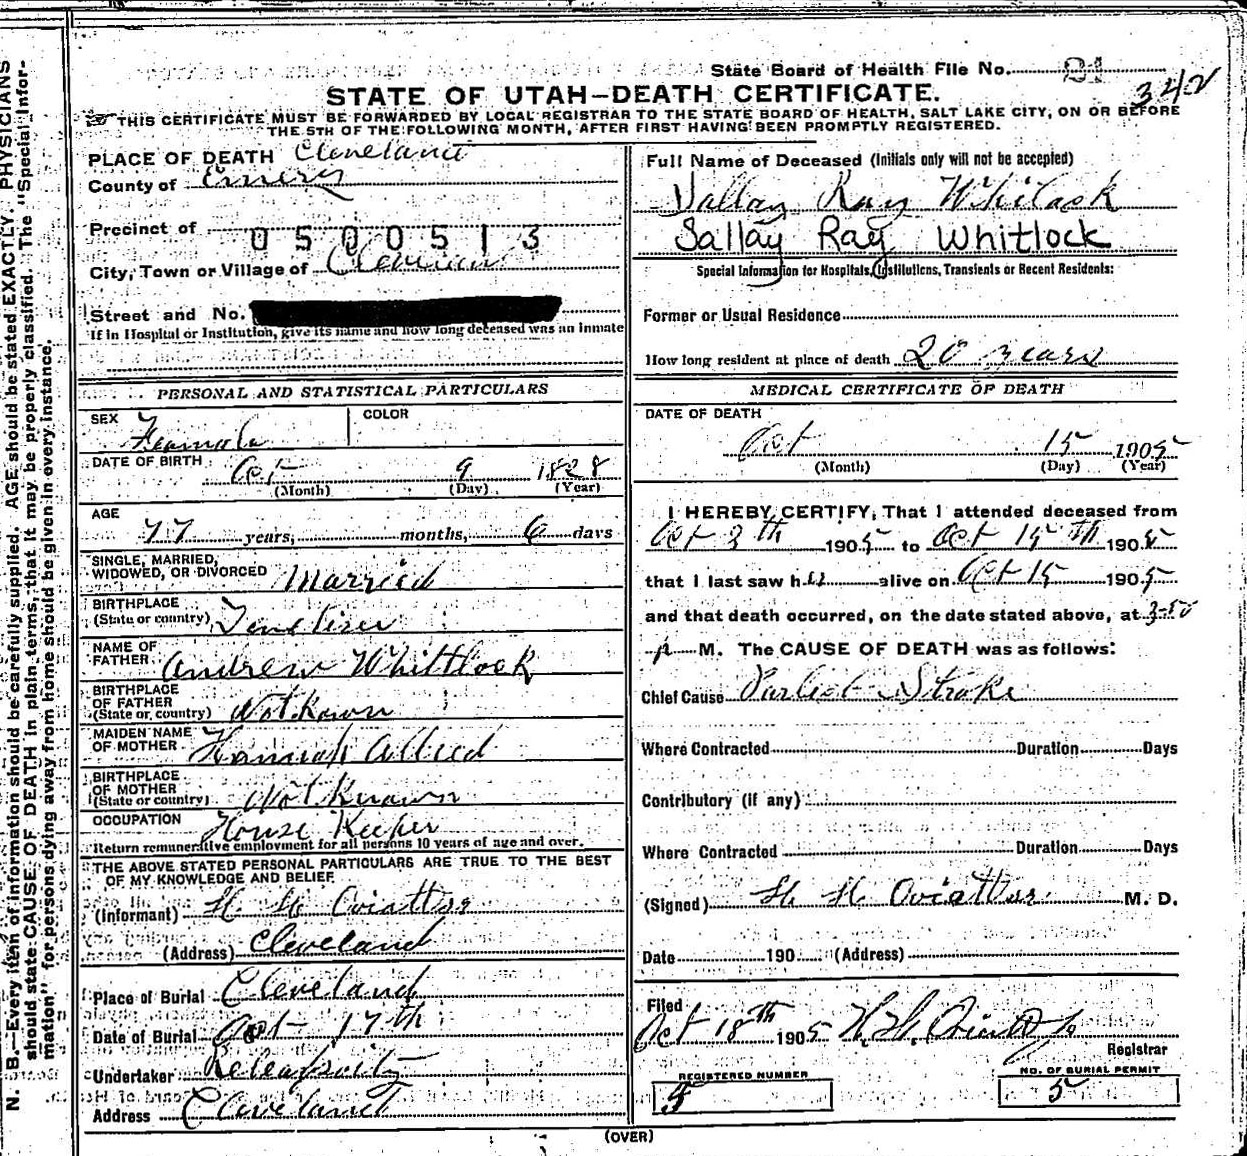 State Board of Health File No. 91
342
STATE OF UTAH—DEATH CERTIFICATE.
THIS CERTIFICATE MUST BE FORWARDED BY LOCAL REGISTRAR TO THE STATE BOARD OF HEALTH, SALT LAKE CITY, ON OR BEFORE
THE 5TH OF THE FOLLOWING MONTH, AFTER FIRST HAVING BEEN PROMPTLY REGISTERED.
PLACE OF DEATH Cleveland
County of Emery
Precinct of
0500513
City, Town or Village of
Street and No.
If in Hospital or Institution, give its name and how long deceased was an inmate
PERSONAL AND STATISTICAL PARTICULARS
SEX COLOR
DATE OF BIRTH Oct 9 1828
(Month) (Day) (Year)
AGE
77 years, months, 6 days
SINGLE, MARRIED,
WIDOWED, OR DIVORCED Married
BIRTHPLACE
(State or country)
NAME OF
FATHER Andrew Whittlock
BIRTHPLACE
OF FATHER
(State or country) Not Kown
MAIDEN NAME
OF MOTHER Hannah Allred
BIRTHPLACE
OF MOTHER
(State or country) Not Known
OCCUPATION House Keeper
Return remunerative employment for all persons 10 years of age and over.
THE ABOVE STATED PERSONAL PARTICULARS ARE TRUE TO THE BEST
OF MY KNOWLEDGE AND BELIEF
(Informant) H H Oviatt
(Address) Cleveland
Place of Burial Cleveland
Date of Burial Oct 17th
Undertaker
Address Cleveland
Full Name of Deceased (Initials only will not be accepted)
Sallay Ray Whitlock
Special Information for Hospitals, Institutions, Transients or Recent Residents:
Former or Usual Residence
How long resident at place of death 20 years
MEDICAL CERTIFICATE OF DEATH
DATE OF DEATH
Oct 15 1905
(Month) (Day) (Year)
I HEREBY CERTIFY, That I attended deceased from
Oct th 1905 to Oct 15th 1905
that I last saw h alive on Oct 15 1905
and that death occurred, on the date stated above, at 3-50
p M. The CAUSE OF DEATH was as follows:
Chief Cause Stroke
Where Contracted Duration Days
Contributory (if any)
Where Contracted Duration Days
(Signed) H H Oviatt M. D.
Date 190 (Address)
Filed
Oct 18th 1905 H. H. Oviatt Jr
Registrar
REGISTERED NUMBER
5
NO. OF BURIAL PERMIT
5
(OVER)
N. B.—Every item of information should be carefully supplied. AGE should be stated EXACTLY. PHYSICIANS
should state CAUSE OF DEATH in plain terms, that it may be properly classified. The "Special Infor-
mation" for persons dying away from home should be given in every instance.